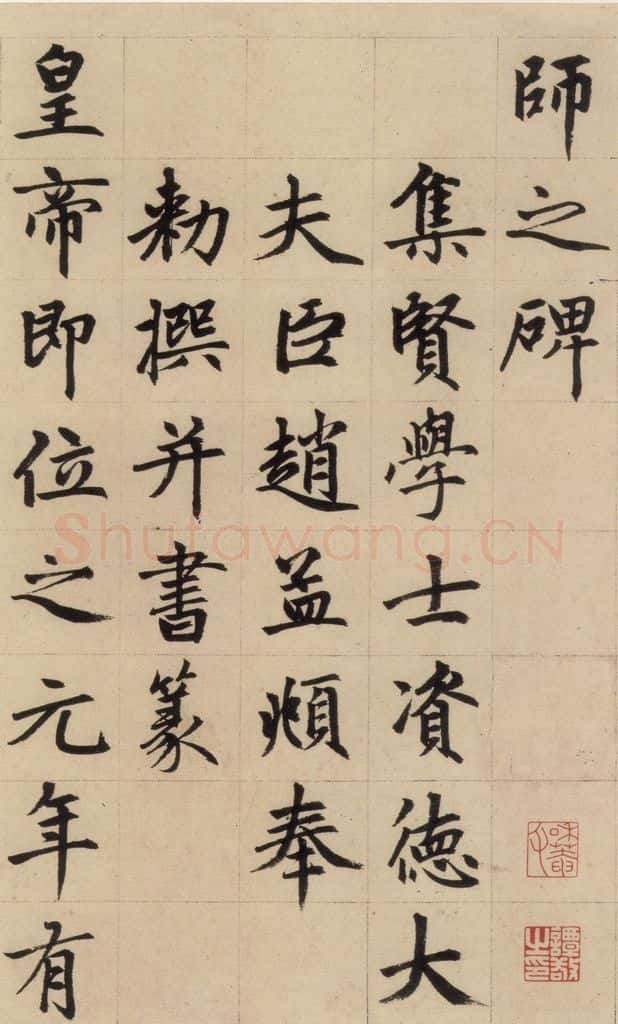 師之碑
譚敬之印
集賢學士資德大
夫臣趙孟頫奉
勅撰并書篆
皇帝即位之元年有
Shufawang.CN